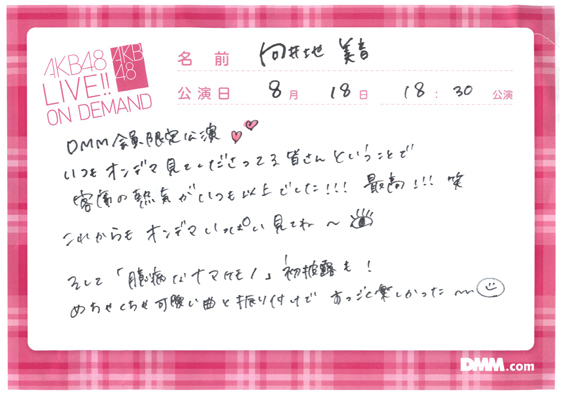 AKB48
LIVE!!
ON DEMAND
AKB
48
名前 向井地 美音
公演日 8月 18日 18:30 公演
DMM会員限定公演
いつもオンデマ見てくださってる皆さんということで
客席の熱気がいつも以上でした!!! 最高!!! 笑
これからもオンデマいっぱい見てね〜
そして「臆病なナマケモノ」初披露も!
めちゃくちゃ可愛い曲と振り付けで すっごく楽しかった〜〜
DMM.com